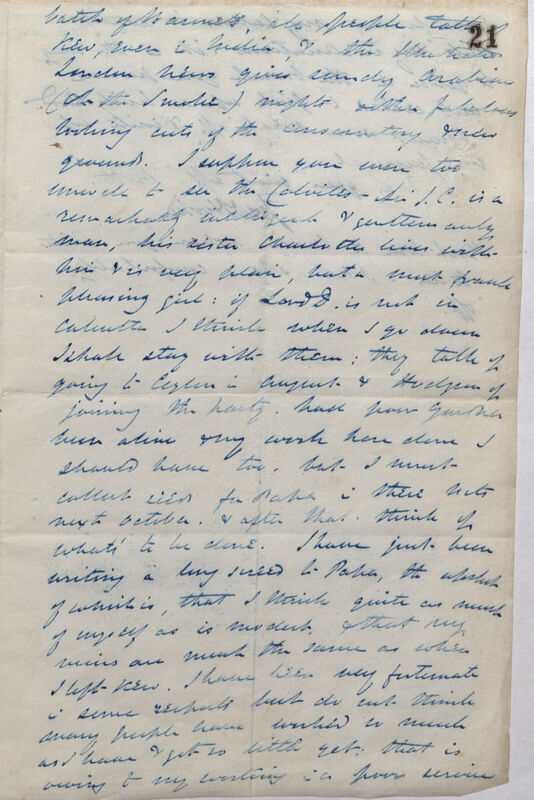 21
batch of Bonnets, all people talk of
Kew, even in India, & the Illustrated
London News gives sundry Arabian
(oh the Smoke) nights & other fabulous
looking cuts of the conservatory & new
grounds. I suppose you were too
unwell to see the Colviles – Sir J.C. is a
remarkably intelligent & gentlemanly
man, his sister Charlotte lives with
him & is very plain, but a most frank
pleasing girl: if Lord D. is not in
Calcutta I think when I go down
I shall stay with them; they talk of
going to Ceylon in August & Hodgson of
joining the party. had poor Gardner
been alive & my work here done I
should have too. but I must
collect seeds for Papa in these hills
next October. & after that think of
what's to be done. I have just been
writing a long screed to Papa, the upshot
of which is, that I think quite as much
of myself as is modest, & that my
views are much the same as when
I left Kew. I have been very fortunate
in some respects but do not think
many people have worked so much
as I have & got so little yet: that is
owing to my working in a poor service